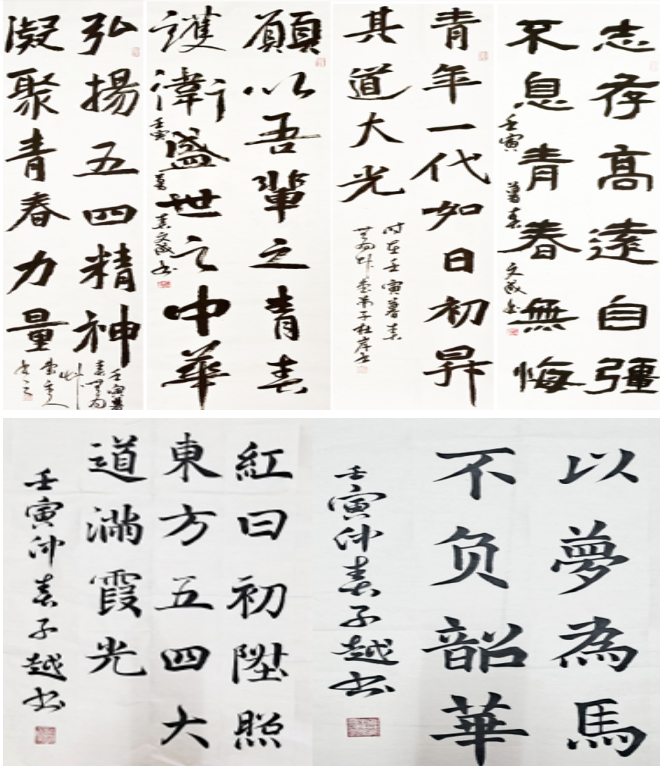 弘揚五四精神
凝聚青春力量
壬寅暮春
願以吾輩之青春
護衛盛世之中華
壬寅暮春文成书
青年一代如日初昇
其道大光
时在壬寅暮春
志存高遠自彊
不息青春無悔
壬寅暮春文成书
紅日初陞照
東方五四大
道滿霞光
壬寅仲春子越书
以夢為馬
不负韶華
壬寅仲春子越书